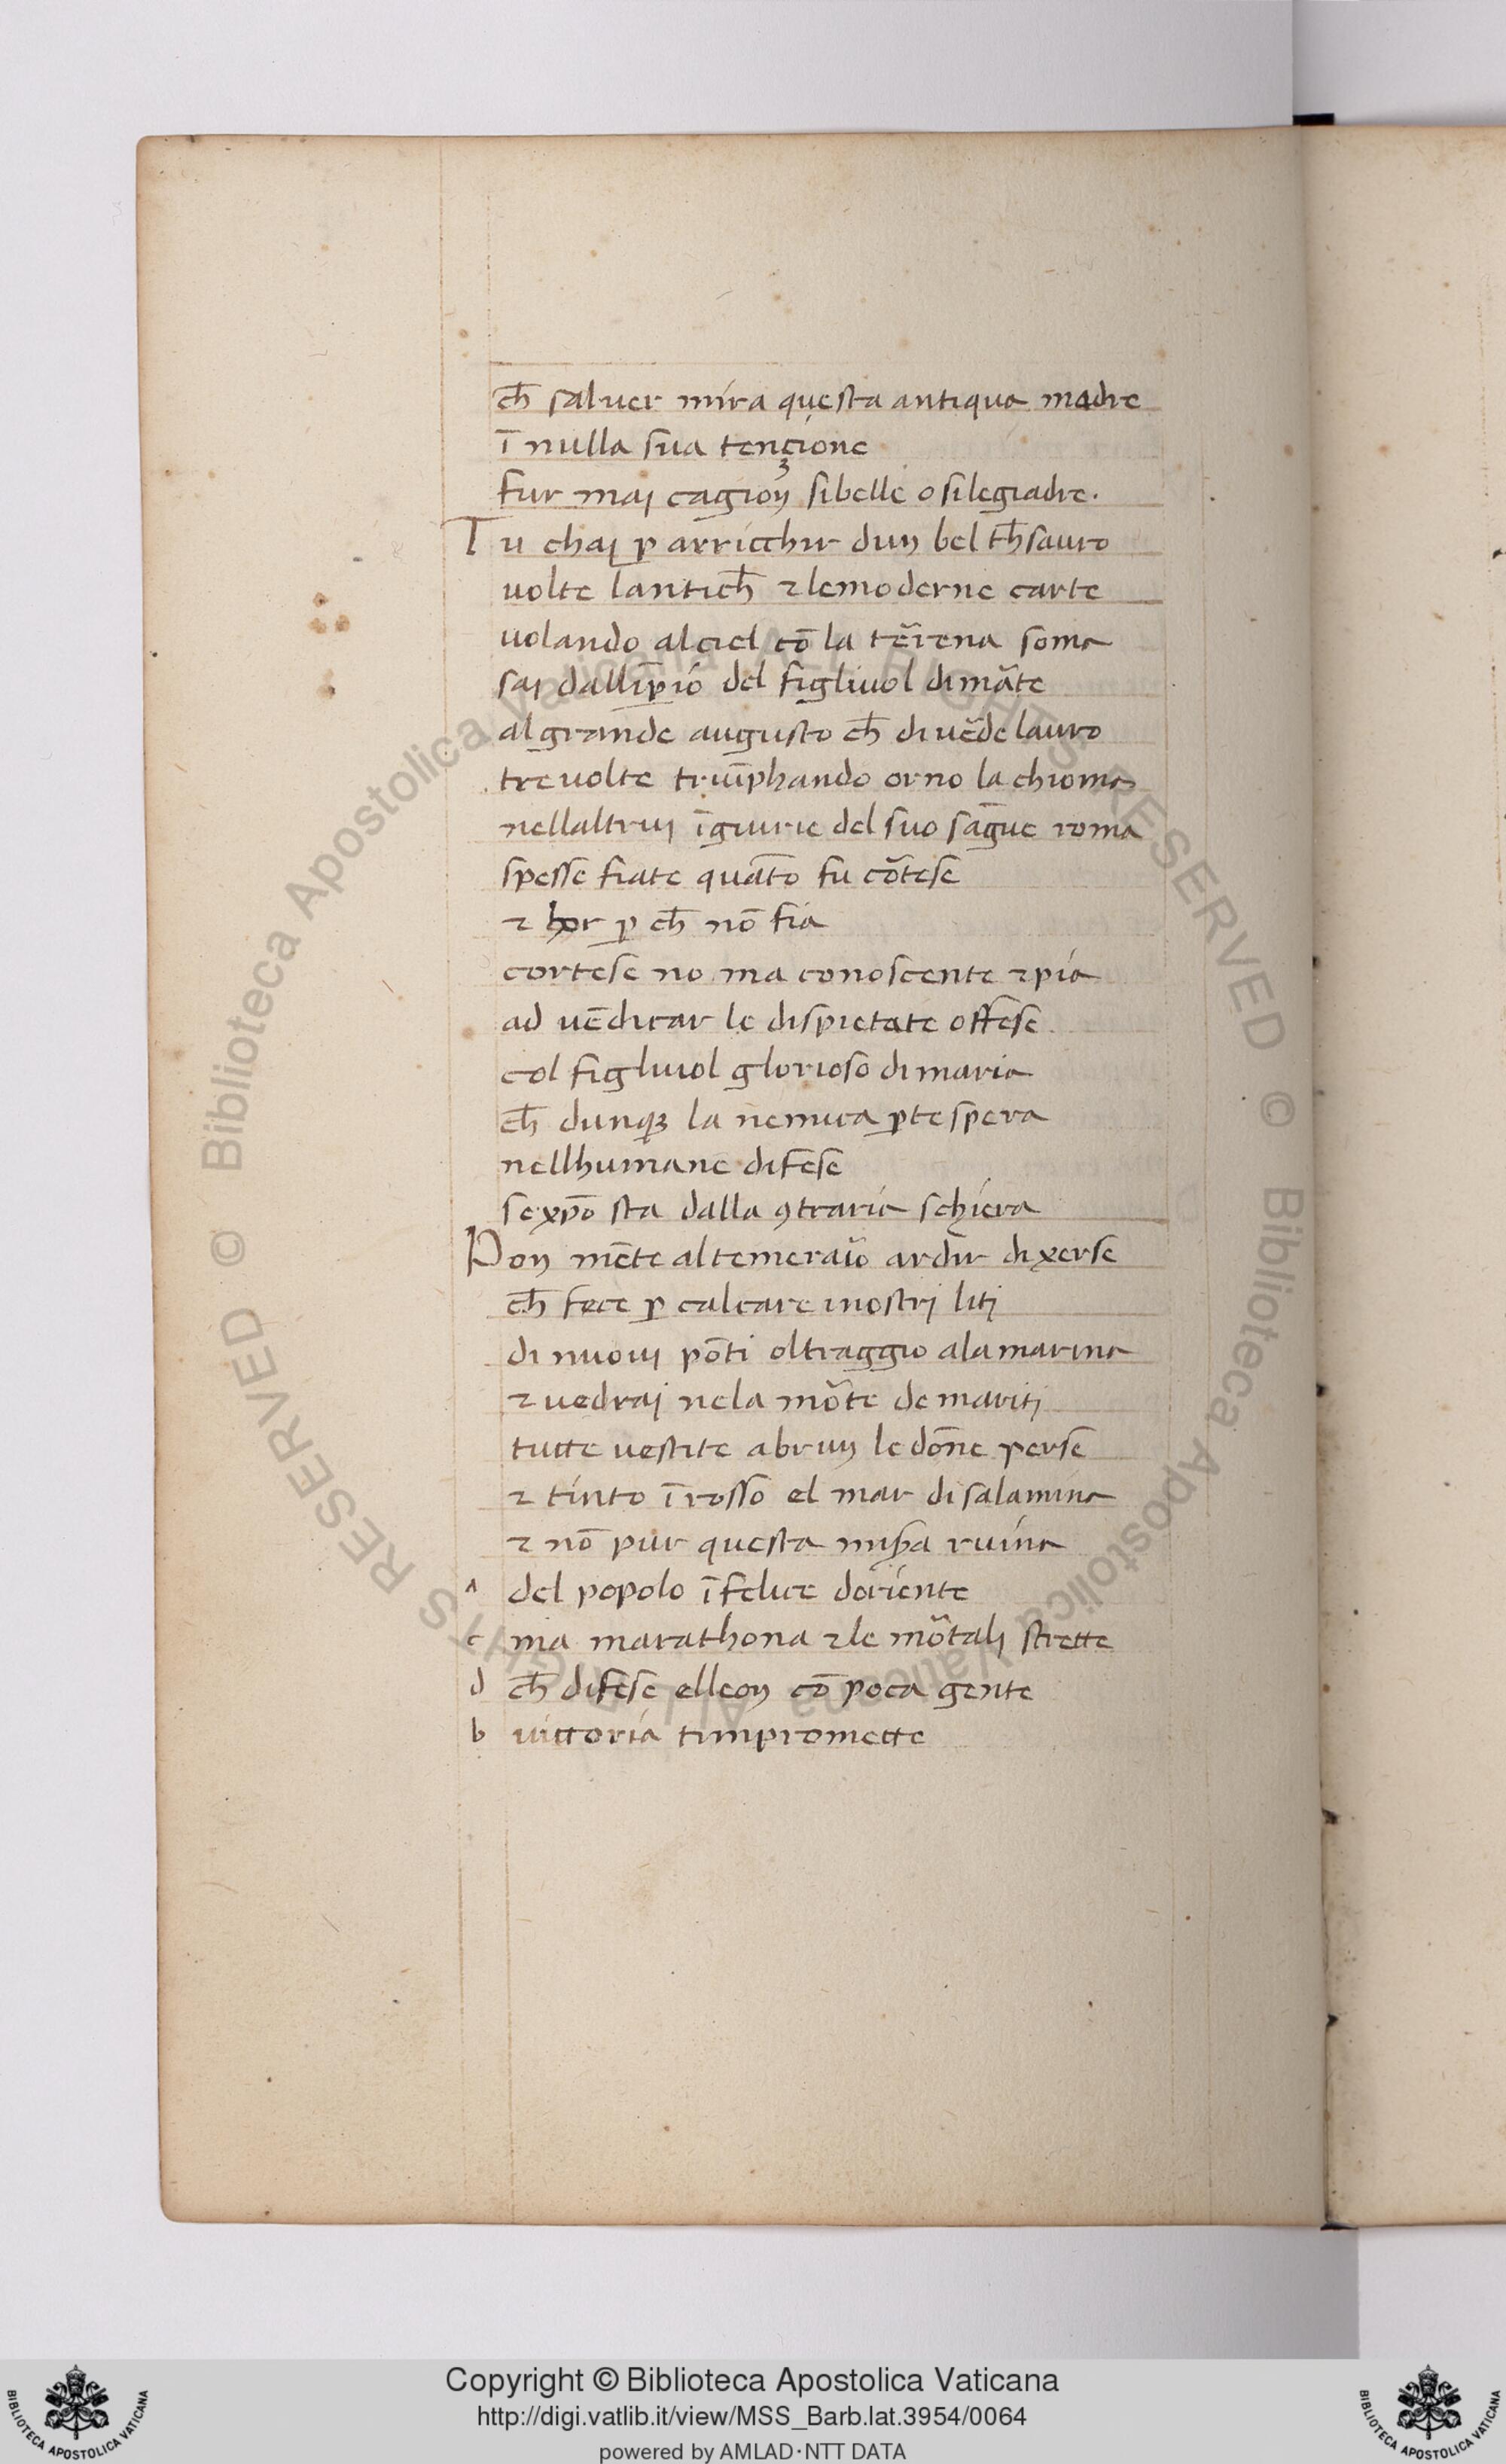 ch̄ saluer mira questa antiqua madre
ī nulla sua tençione
fur maj cagionj sibelle o silegiadre.
Tu chaj ꝑ arricchir dun bel th̄sauro
uolte lantich̄ ⁊ lemoderne carte
uolando alciel cō la tērena soma
saj dallīꝑio del figliuol dimāte
algrande augusto ch̄ diuēde lauro
treuolte triūphando orno la chioma
nellaltruj īgiurie del suo sāgue roma
spesse fiate quāto fu cōtese
⁊ hor ꝑ ch̄ nō fia
cortese no ma conoscente ⁊ pia
ad uēdicar le dispietate offese
col figliuol glorioso dimaria
ch̄ dunqꝫ la nemica ꝑte spera
nellhumane difese
se xp̄o sta dalla ꝯtraria schiera
Pon mēte altemeraīo ardir dixerse
ch̄ fece ꝑ calcare inostrj litj
di nuouj pōti oltraggio alamarina
⁊ uedraj nela mōte de maritj
tutte uestite abrun ledōne perse
⁊ tinto ī rosso el mar disalamina
⁊ nō pur questa miẜa ruina
a del popolo īfelice doriente
c ma marathona ⁊ le mōtalj strette
d ch̄ difese elleon cō poca gente
b uittoria timpromette
Copyright © Biblioteca Apostolica Vaticana
http://digi.vatlib.it/view/MSS_Barb.lat.3954/0064
powered by AMLAD·NTT DATA
BIBLIOTECA APOSTOLICA VATICANA
BIBLIOTECA APOSTOLICA VATICANA
© Biblioteca Apostolica Vaticana ALL RIGHTS RESERVED
© Biblioteca Apostolica Vaticana ALL RIGHTS RESERVED